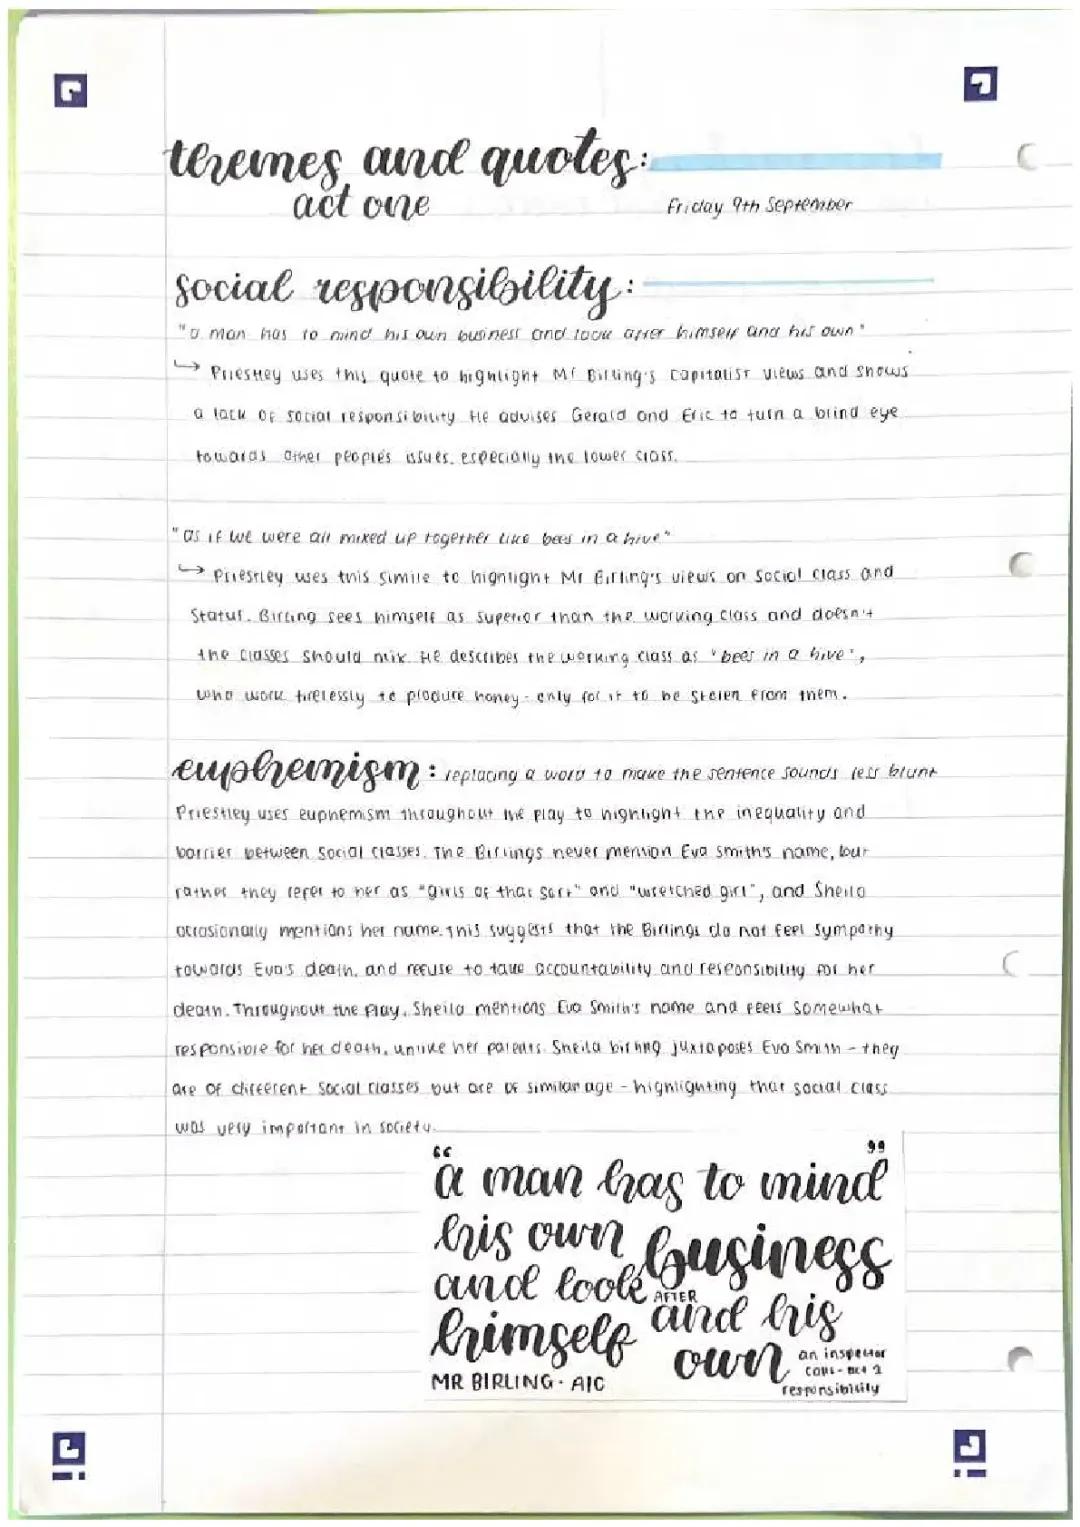 themes and quotes:
act one
Friday 9th September
social responsibility:
"a man has to mind his own business and look after himself and his own"
↳ Priestley uses this quote to highlight Mr Birling's capitalist views and shows
a lack of social responsibility. He advises Gerald and Eric to turn a blind eye
towards other people's issues, especially the lower class.
"as if we were all mixed up together like bees in a hive"
↳ Priestley uses this simile to highlight Mr Birling's views on social class and
status. Birling sees himself as superior than the working class and doesn't
the classes should mix. He describes the working class as "bees in a hive",
who work tirelessly to produce honey - only for it to be stolen from them.
euphemism: replacing a word to make the sentence sounds less blunt
Priestley uses euphemism throughout the play to highlight the inequality and
barrier between social classes. The Birlings never mention Eva Smith's name, but
rather they refer to her as "girls of that sort" and "wretched girl", and Sheila
occasionally mentions her name. This suggests that the Birlings do not feel sympathy
towards Eva's death, and refuse to take accountability and responsibility for her
death. Throughout the play, Sheila mentions Eva Smith's name and feels somewhat
responsible for her death, unlike her parents. Sheila birling juxtaposes Eva Smith - they
are of different social classes but are of similar age - highlighting that social class
was very important in society.
"a man has to mind"
his own business
and look AFTER
himself and his
own
MR BIRLING · AIC
an inspector
calls - act 1
responsibility